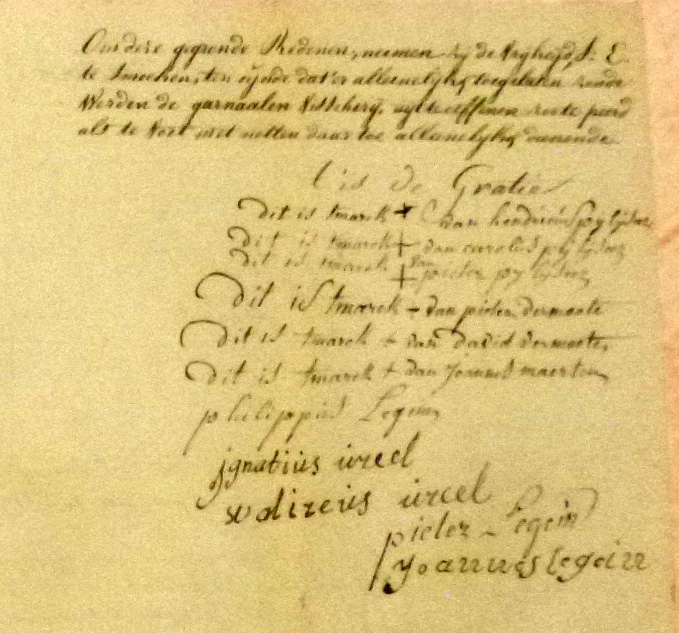 Om dese gegronde Redenen, neemen zij de Vryheyd, S: E.
te Smeeken, ten eynde dat er alleenelyk toegelaten zoude
Werden de garnaalen Visscherij, uyt te effenen zoo te peerd
als te Voet met netten daar toe alleenelyk dienende.
t'is de Gratie
dit is tmarck + van hendricus pylyser
dit is tmarck + van carolus pylyser
dit is tmarck + van pieter pylyser
dit is tmarck + van pieter dermoete
dit is tmarck + van david vermoote,
dit is tmarck + van joannes maerten
philippus Legein
jgnatiüs ürcel
ürcel
pieter Legein
yoannes legein